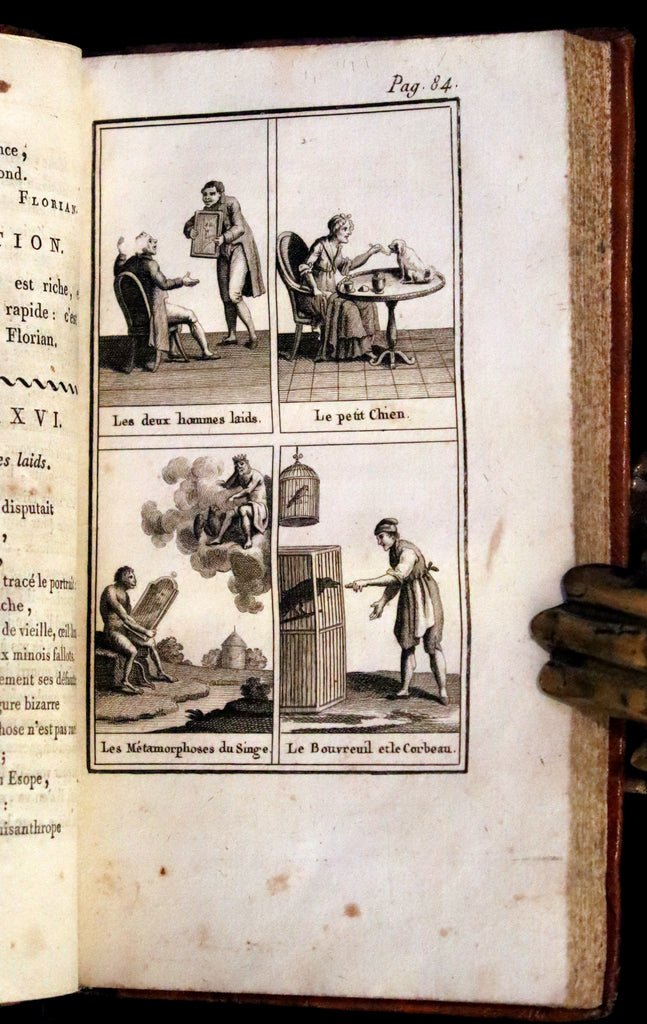 nce ;
ond.
FLORIAN.
TION.
est riche,
rapide : c'est
Florian.
XVI.
es laids.
disputait
,
tracé le portrait
che ,
de vieille, œil
x minois fallots
ement ses
gure bizarre
hose n'est pas
;
Esope,
:
isanthrope
Pag. 84.
Les deux hommes laids.
Le petit Chien.
Les Métamorphoses du Singe.
Le Bouvreuil et le Corbeau.